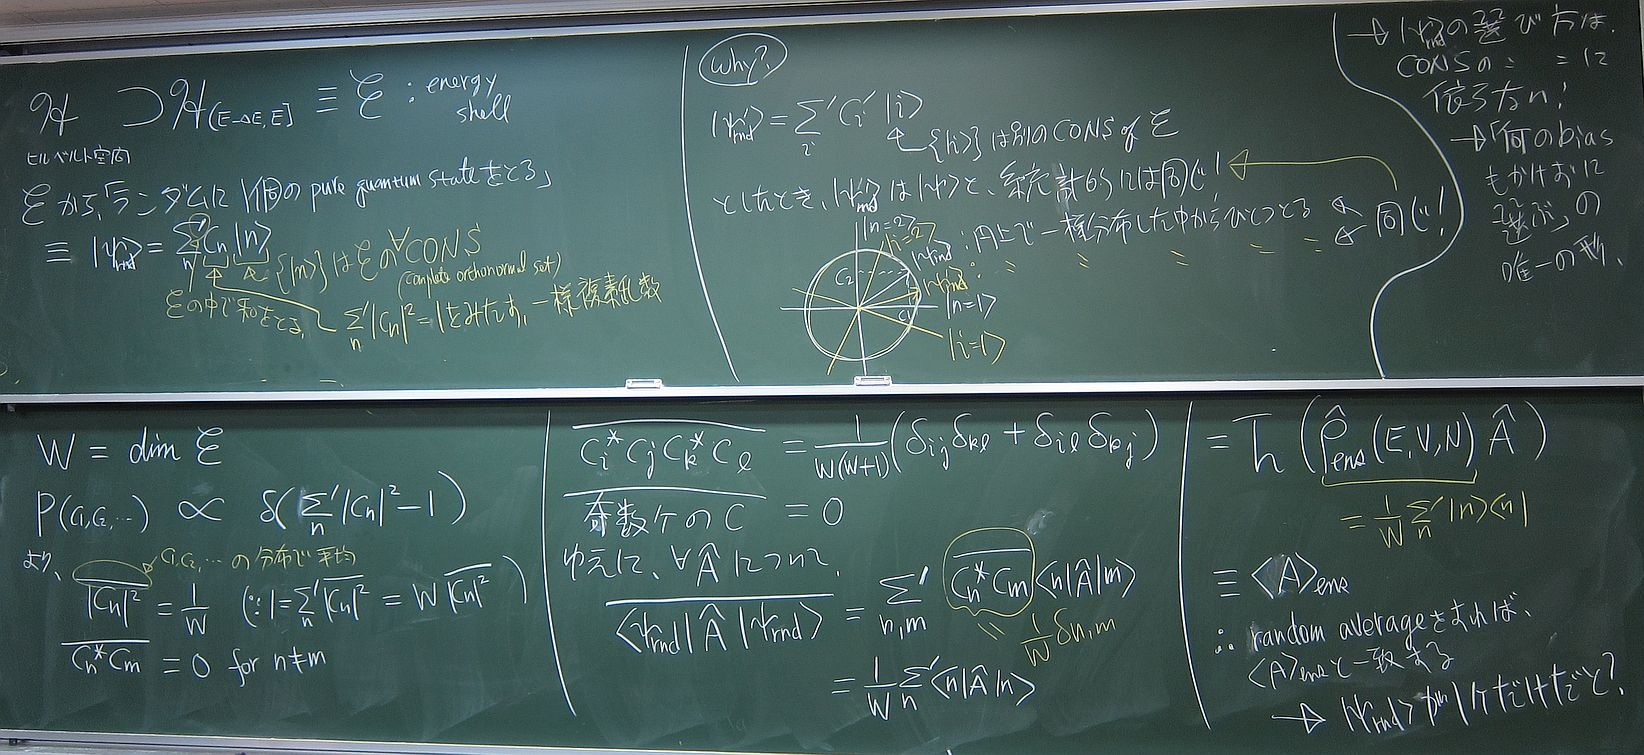 ℋ ⊃ ℋ(E-ΔE, E] ≡ ℰ : energy shell
ヒルベルト空間
ℰから、「ランダムに1個の pure quantum stateをとる」
≡ |ψrnd⟩ = Σ'n Cn |n⟩
{|n⟩}はℰの∀CONS
(complete orthonormal set)
ℰの中で和をとる
Σ'n |Cn|² = 1をみたす、一様複素乱数
Why?
|ψ'rnd⟩ = Σ'i Ci' |i⟩
{|i⟩}は別のCONS of ℰ
としたとき、|ψ'rnd⟩は|ψrnd⟩と、統計的には同じ!
|n=2⟩
|i=2⟩
|ψrnd⟩ : 円上で一様分布した中からひとつとる
|ψ'rnd⟩ : 〃 〃 〃 〃 〃
同じ!
C2
C1
|n=1⟩
|i=1⟩
→ |ψrnd⟩の選び方は、
CONSの
依らない!
→「何のbias
もかけずに
選ぶ」の
唯一の形、
W = dim ℰ
P(C1,C2,…) ∝ δ(Σ'n |Cn|² - 1)
より、
C1,C2,…の分布で平均
|Cn|²‾ = 1/W (∵ 1 = Σ'n |Cn|²‾ = W |Cn|²‾)
Cn*Cm‾ = 0 for n≠m
Ci*CjCk*Cℓ‾ = 1/W(W+1) (δij δkℓ + δiℓ δkj)
奇数ケのC‾ = 0
ゆえに、∀Âについて、
⟨ψrnd|Â|ψrnd⟩‾ = Σ'n,m Cn*Cm‾ ⟨n|Â|m⟩
〃 1/W δn,m
= 1/W Σ'n ⟨n|Â|n⟩
= Tr (ρ̂ens(E,V,N) Â)
= 1/W Σ'n |n⟩⟨n|
≡ ⟨A⟩ens
∴ random averageをすれば、
⟨A⟩ensと一致する
→ |ψrnd⟩が1ケだけだと?